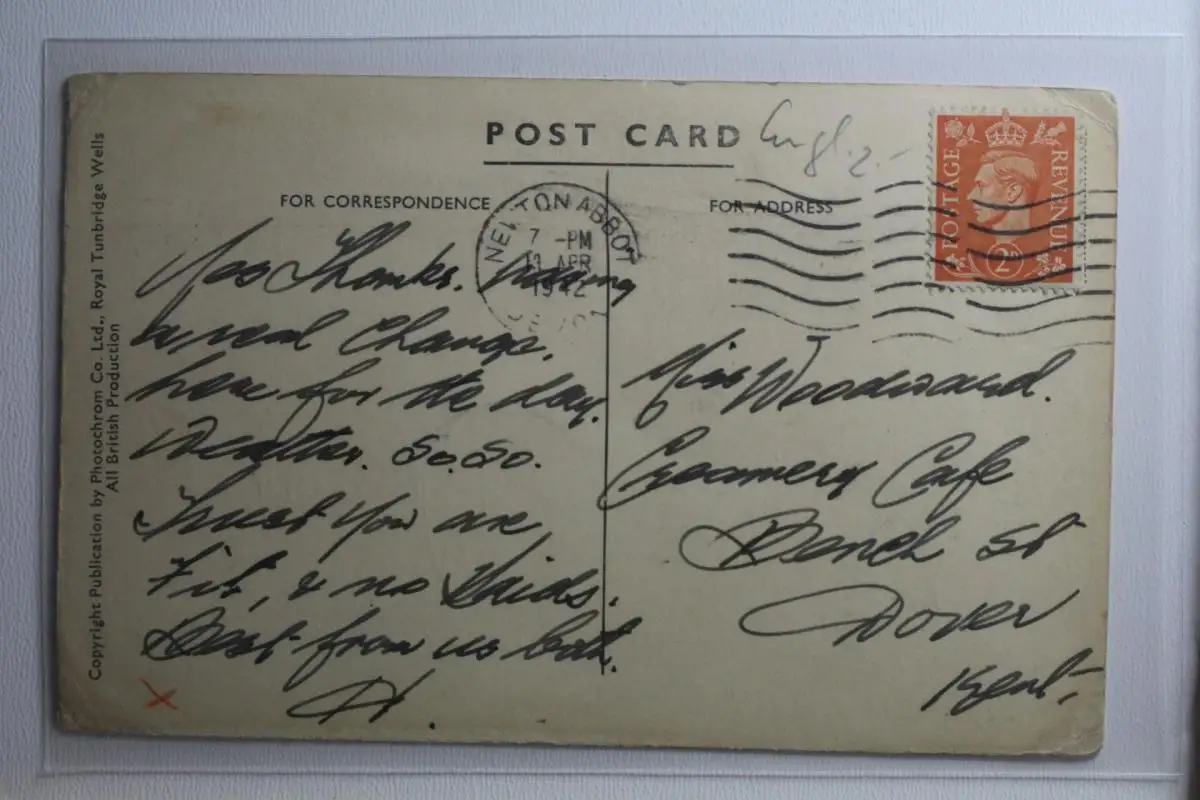 POST CARD
Engl. 2.-
FOR CORRESPONDENCE
FOR ADDRESS
POSTAGE
REVENUE
2D
NEWTON ABBOT
7 -PM
13 APR
1942
DEVON
Yes Thanks. Having
a real Change.
here for the day.
Weather. So. So.
Trust you are
Fit, & no Raids.
Best from us both.
H.
X
Miss Woodward.
Creamery Cafe
Bench St
Dover
Kent.
Copyright Publication by Photochrom Co. Ltd., Royal Tunbridge Wells
All British Production